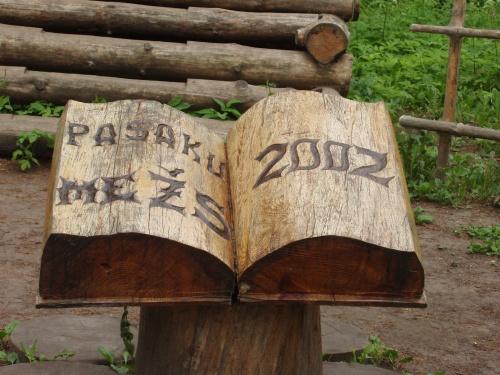 PASAKU
MEŽS
2002